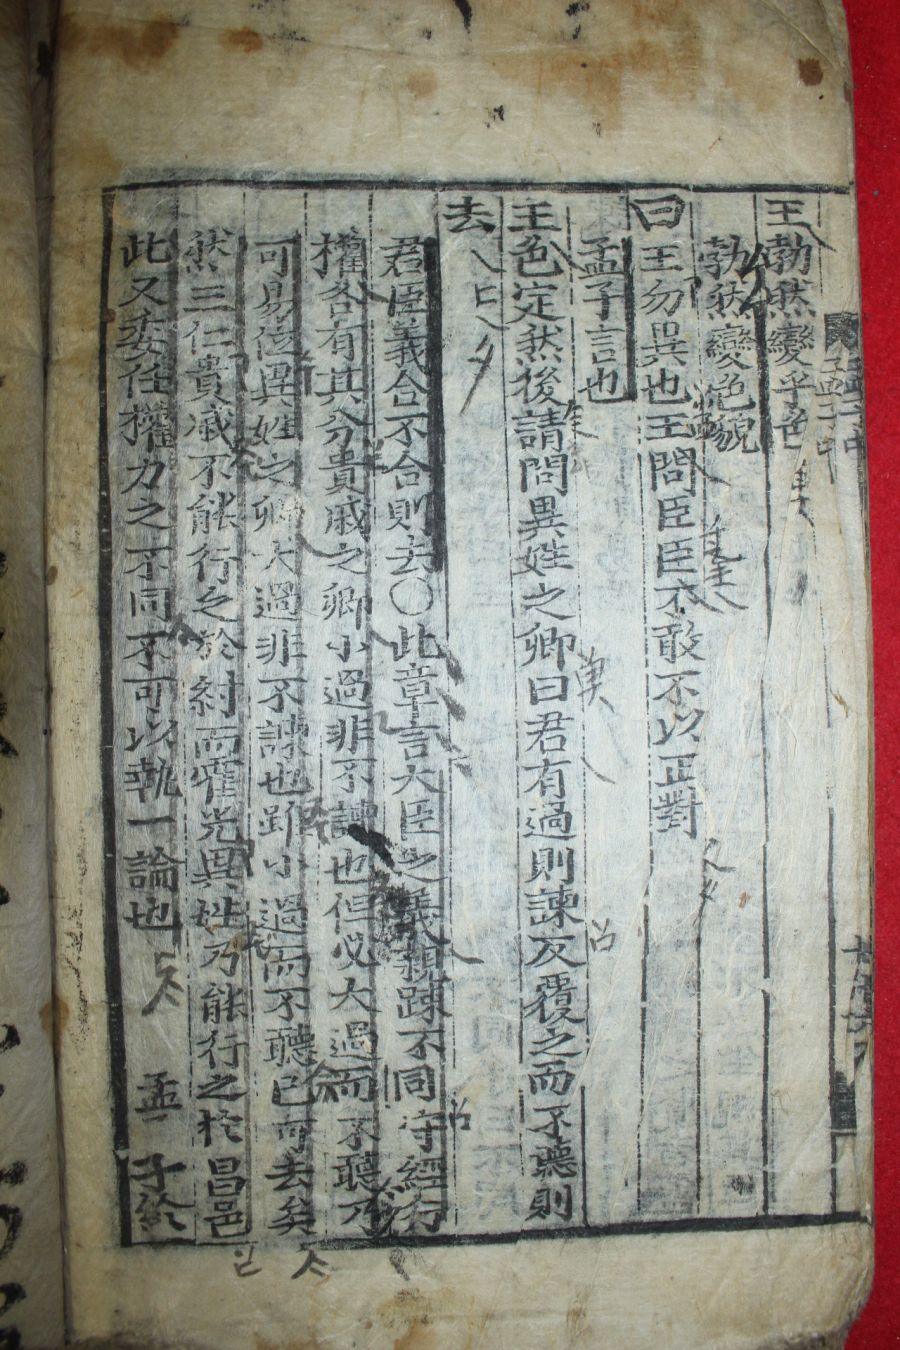 王勃然變乎色
勃然變色貌
曰王勿異也王問臣臣不敢不以正對
孟子言也
王色定然後請問異姓之卿曰君有過則諫反覆之而不聽則
去
君臣義合不合則去○此章言大臣之義親踈不同守經行
權各有其分貴戚之卿小過非不諫也但必大過而不聽乃
可易位異姓之卿大過非不諫也雖小過而不聽已可去矣
然三仁貴戚不能行之於紂而霍光異姓乃能行之於昌邑
此又委任權力之不同不可以執一論也